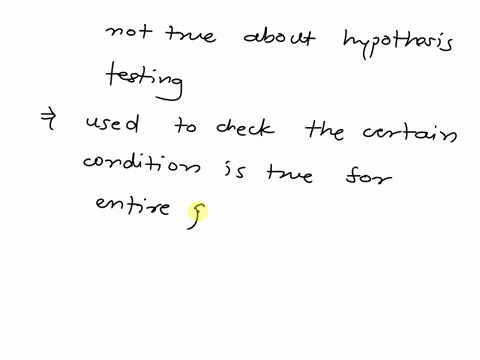 not true about hypothesis
testing
⇒ used to check the certain
condition is true for
entire